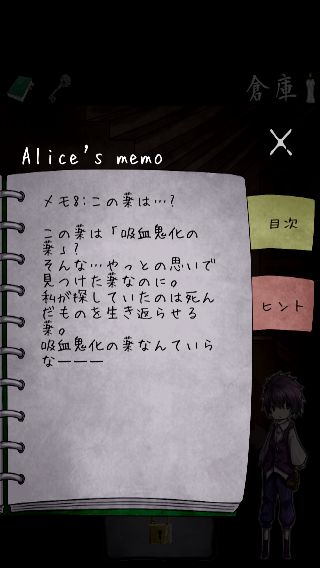 倉庫
Alice's memo
メモ8:この薬は…?
この薬は「吸血鬼化の
薬」?
そんな…やっとの思いで
見つけた薬なのに。
私が探していたのは死ん
だものを生き返らせる
薬。
吸血鬼化の薬なんていら
なーーー
目次
ヒント